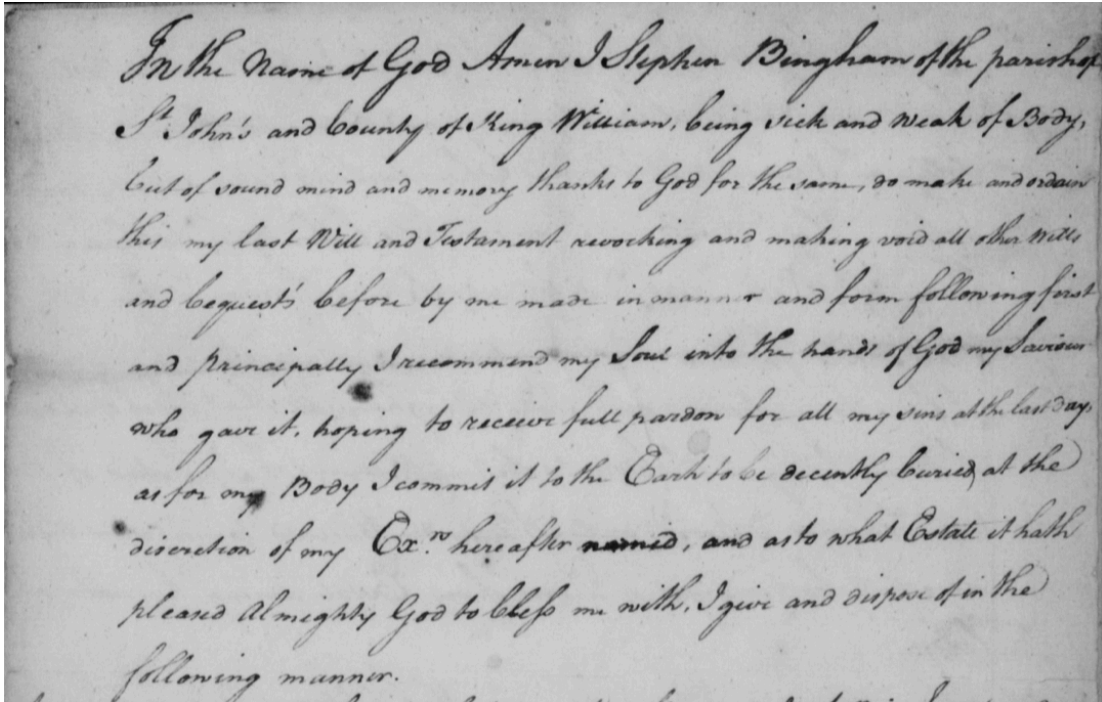 In the Name of God Amen I Stephen Bingham of the parish of
St. John's and County of King William, being sick and weak of Body,
but of sound mind and memory thanks to God for the same, do make and ordain
this my last Will and Testament revocking and making void all other Wills
and bequest's before by me made in manner and form following first
and principally I recommend my Soul into the hands of God my Saviour
who gave it, hoping to receive full pardon for all my sins at the last day,
as for my Body I commit it to the Earth to be decently buried, at the
discretion of my Ex.rs hereafter named, and as to what Estate it hath
pleased Almeghty God to bless me with, I give and dispose of in the
following manner.